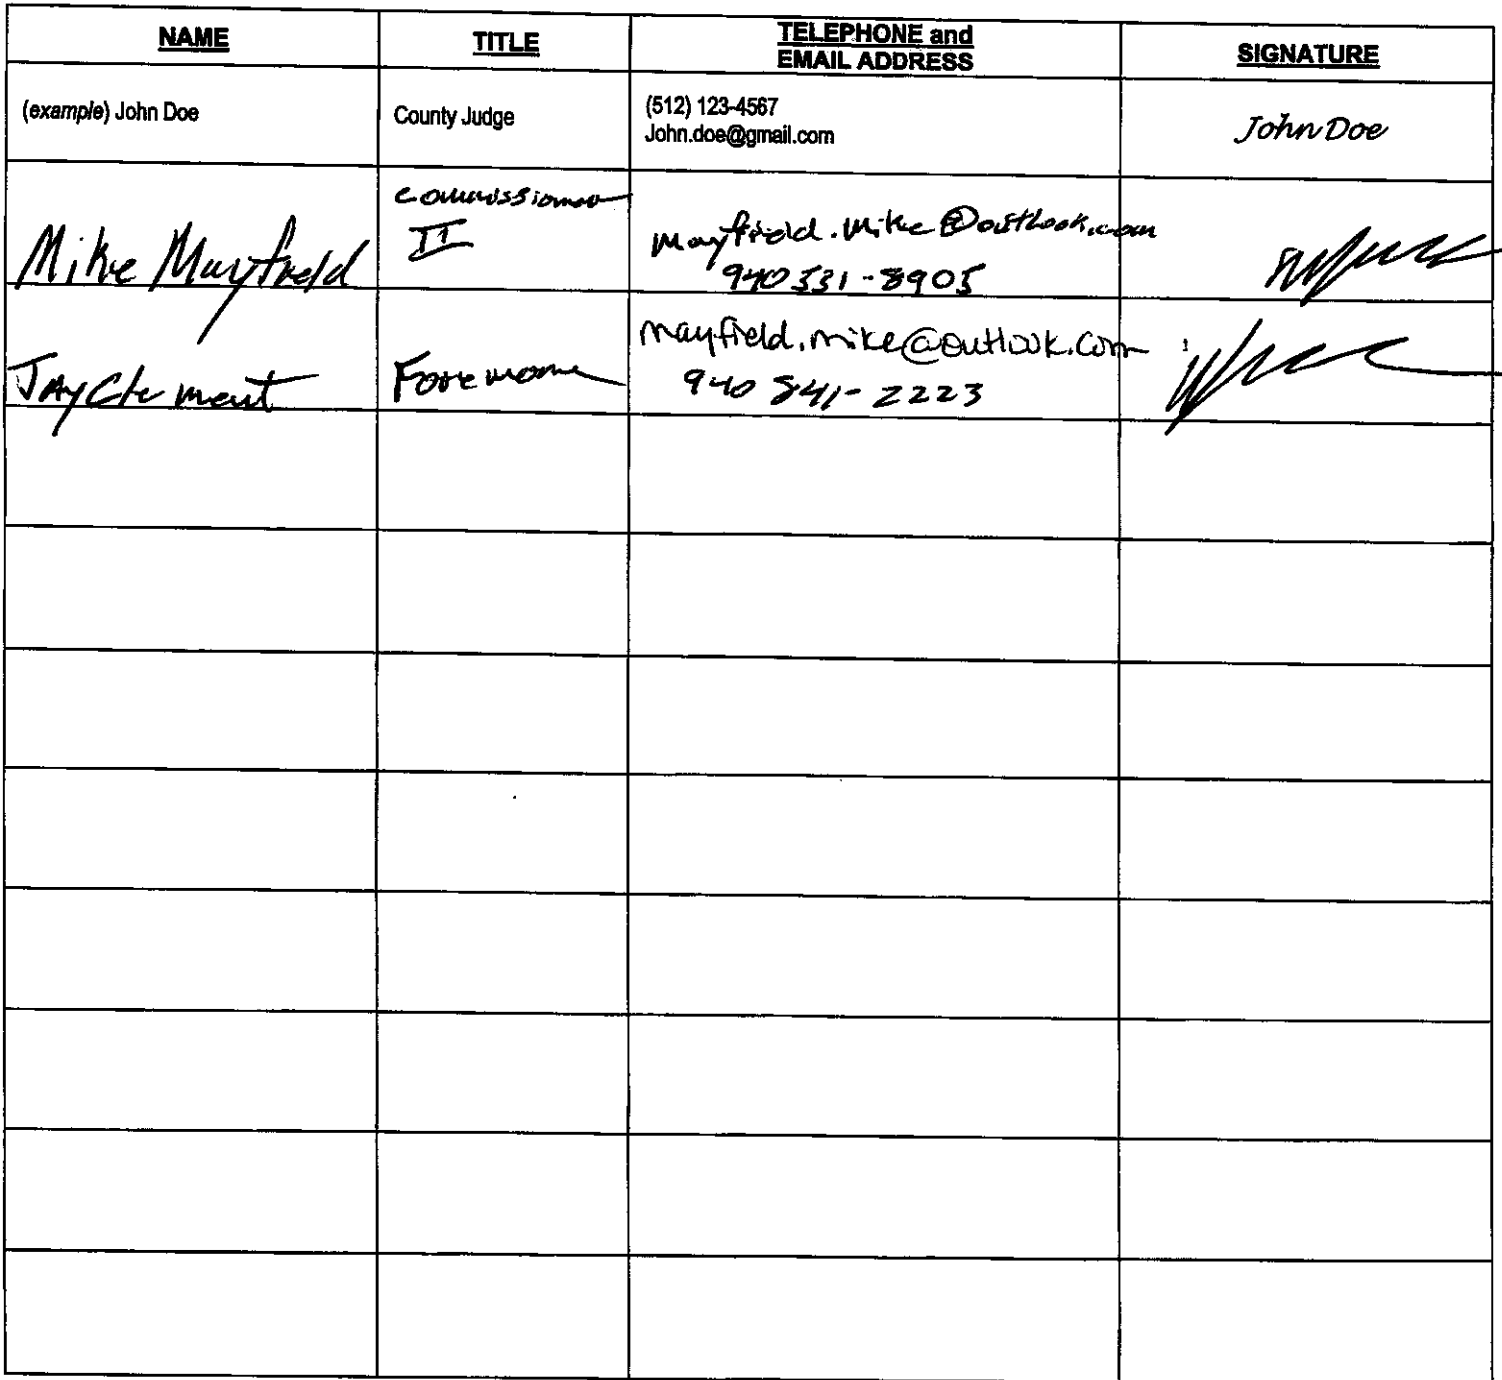 NAME
TITLE
TELEPHONE and
EMAIL ADDRESS
SIGNATURE
(example) John Doe
County Judge
(512) 123-4567
John.doe@gmail.com
John Doe
Mike Mayfield
Commissioner
II
mayfield.mike@outlook.com
940 531-8905
Jay Clement
Foremome
mayfield.mike@outlook.com
940 841-2223